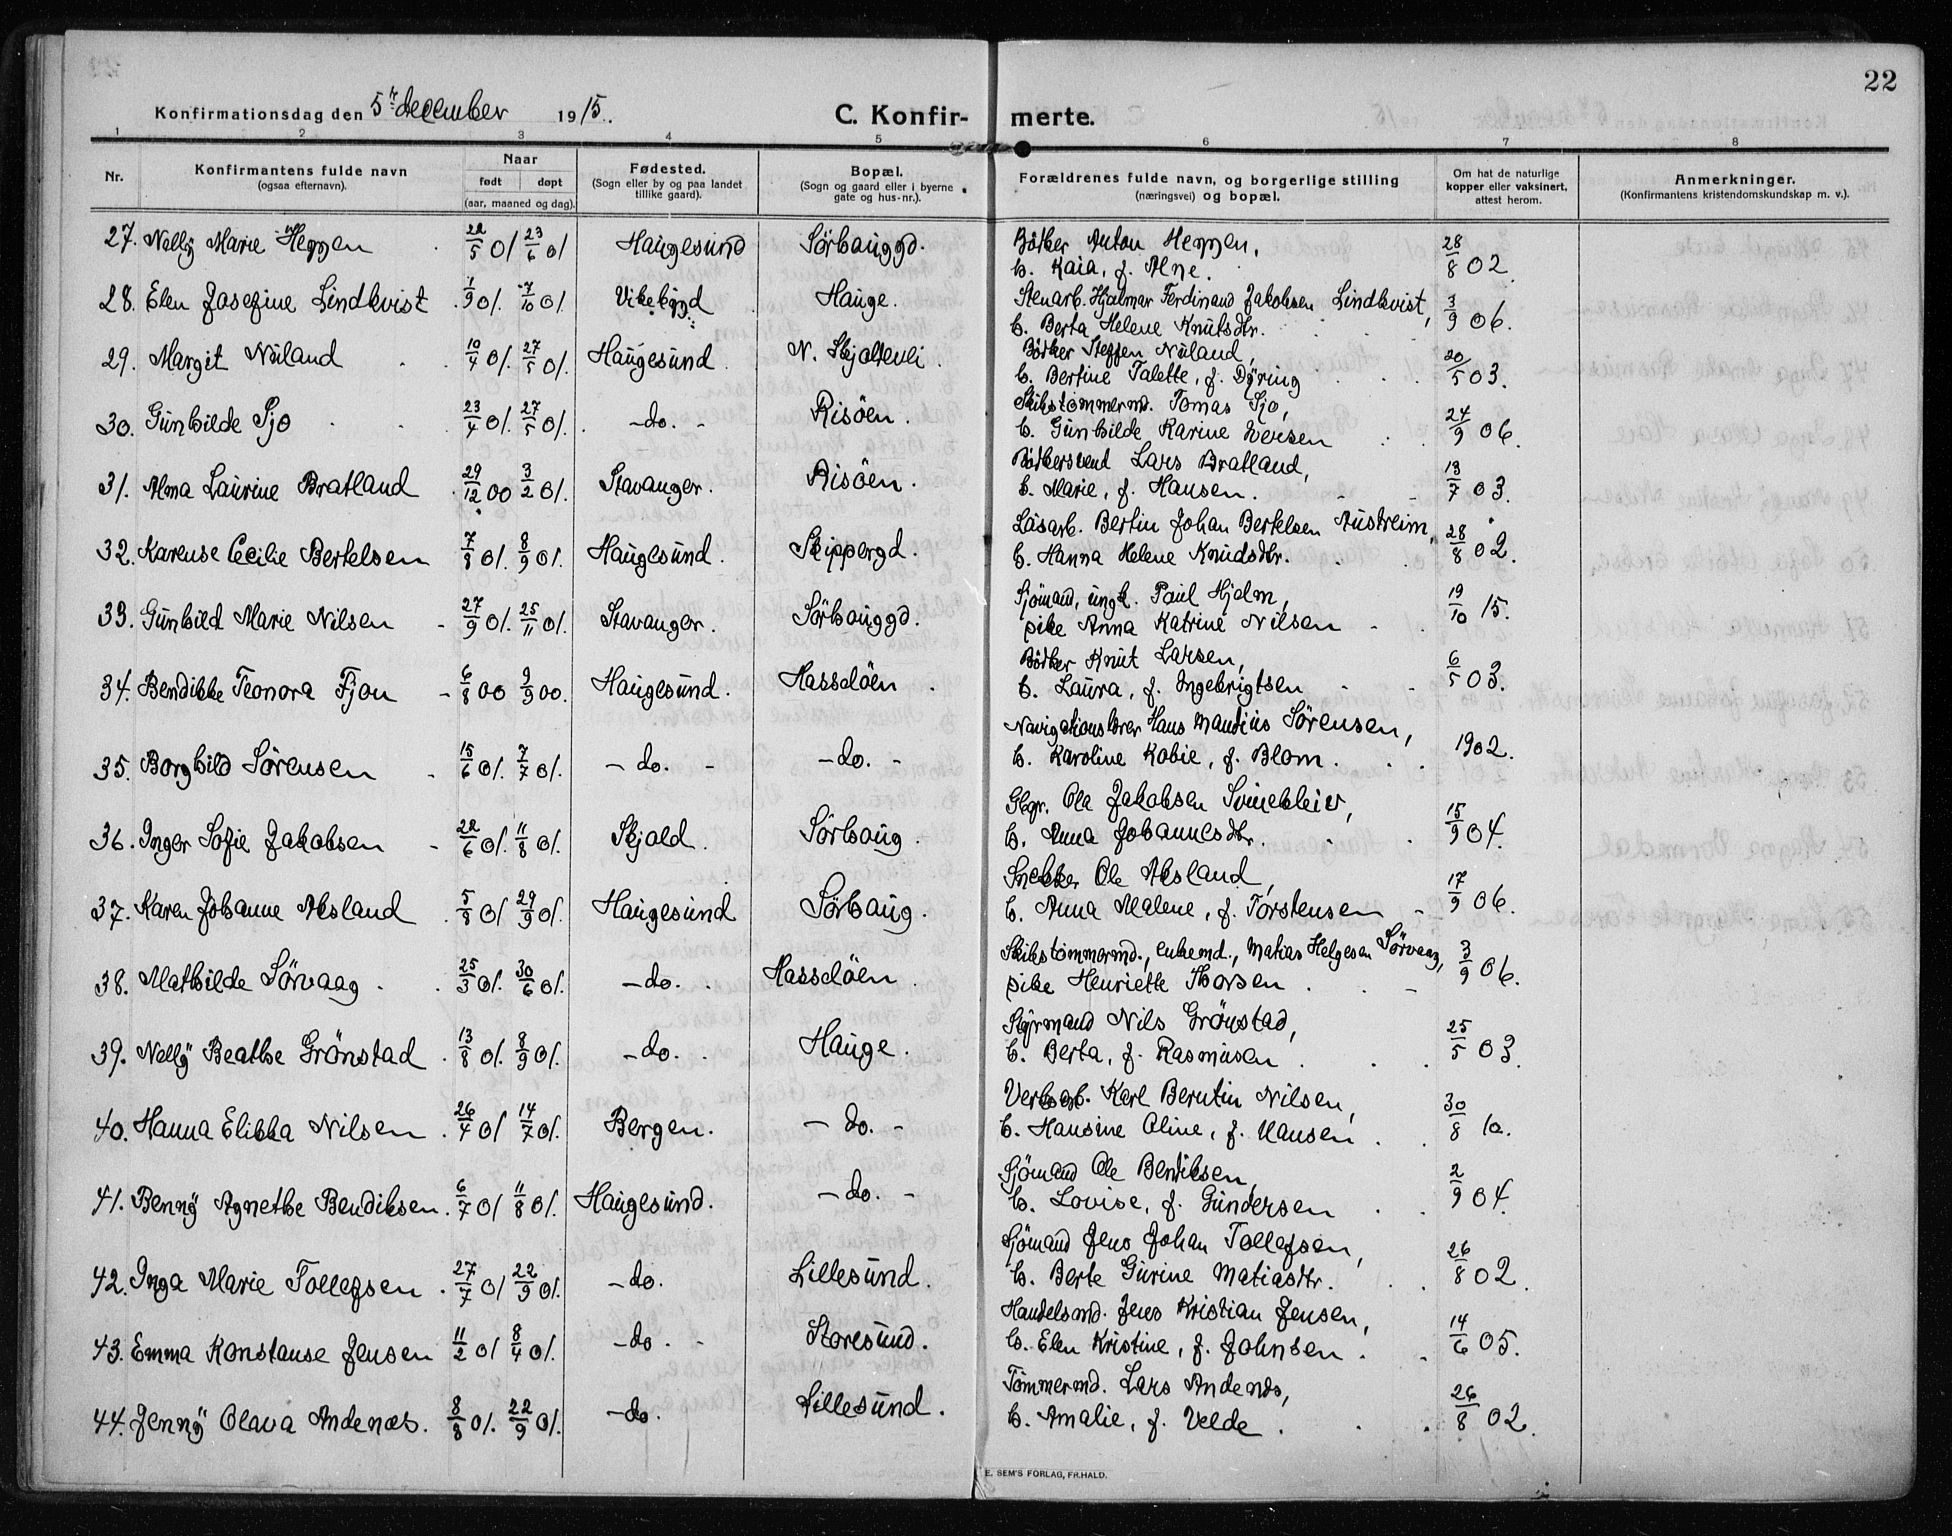 22
Konfirmationsdag den 5te december 1915. C. Konfirmerte.
1 2 3 4 5 6 7 8
Nr. Konfirmantens fulde navn (ogsaa efternavn). Naar født døpt (aar, maaned og dag). Fødested. (Sogn eller by og paa landet tillike gaard). Bopæl. (Sogn og gaard eller i byerne gate og hus-nr.). Forældrenes fulde navn, og borgerlige stilling (næringsvei) og bopæl. Om hat de naturlige kopper eller vaksinert, attest herom. Anmerkninger. (Konfirmantens kristendomskundskap m. v.).
27. Nelly Marie Heggen 22/5 01 23/6 01 Haugesund Sörhauggd. Bödker Anton Heggen, 28/8 02.
h. Kaia, f. Alne.
28. Elen Josefine Lindkvist 1/9 01. 7/10 01. Vikebygd Hauge. Stenarb. Hjalmar Ferdinand Jakobsen Lindkvist, 3/9 06.
h. Berta Helene Knutsdtr.
29. Margit Niland 10/4 01. 27/5 01. Haugesund. N. Skjoldevei. Bödker Steffen Niland, 20/5 03.
h. Bertine Talette, f. Döring
30. Gunhilde Sjo 23/4 01. 27/5 01. -do.- Risöen. Skibstömmermd. Tomas Sjo, 24/9 06.
h. Gunhilde Karine Iversen
31. Alma Laurine Bratland 29/12 00 3/2 01. Stavanger. Risöen. Bödkersvend Lars Bratland, 13/7 03.
h. Marie, f. Hansen.
32. Karense Cecilie Bertelsen 7/8 01. 8/9 01. Haugesund. Skippergd. Lösarb. Bertin Johan Bertelsen Austreim, 28/8 02.
h. Hanna Helene Knudsdtr.
33. Gunhild Marie Nilsen 27/9 01. 25/11 01. Stavanger. Sörhauggd. Sjömand, ungk. Paul Hjelm, 19/10 15.
pike Anna Katrine Nilsen
34. Bendikke Teonora Fjon 6/8 00 9/9 00. Haugesund. Hasselöen. Bödker Knut Larsen, 6/5 03.
h. Laura, f. Ingebrigtsen
35. Borghild Sörensen 15/6 01. 7/7 01. -do.- -do.- Navigationslærer Hans Mandius Sörensen, 1902.
h. Karoline Kobie, f. Blom.
36. Inger Sofie Jakobsen 22/6 01. 11/8 01. Skjold. Sörhaug. Gbr. Ola Jakobsen Svinekleiv, 15/9 04.
h. Anna Johannesdtr.
37. Karen Johanne Aksland 5/8 01 29/9 01. Haugesund Sörhaug. Snekker Ole Aksland, 17/9 06.
h. Anna Malene, f. Torstensen
38. Mathilde Sörvaag 25/3 01. 30/6 01. -do. Hasselöen. Skibstömmermd., enkemd., Matias Helgesen Sörvaag, 3/9 06.
pike Henriette Thorsen
39. Nelly Beathe Grönstad 13/8 01. 8/9 01. -do. Hauge. Styrmand Nils Grönstad, 25/5 03.
h. Berta, f. Rasmusen
40. Hanna Elikka Nilsen 26/4 01 14/7 01. Bergen. -do.- Verksarb. Karl Berntin Nilsen, 30/8 10.
h. Hansine Oline, f. Hansen
41. Benny Agnethe Bendiksen. 6/7 01 11/8 01. Haugesund. -do.- Sjömand Ole Bendiksen, 2/9 04.
h. Lovise, f. Gundersen
42. Inga Marie Tollefsen 27/7 01 22/9 01. -do. Lillesund. Sjömand Jens Johan Tollefsen, 26/8 02.
h. Berte Gurine Matiasdtr.
43. Emma Konstanse Jensen 11/2 01 8/4 01. -do.- Storesund. Handelsmd. Jens Kristian Jensen, 14/6 05.
h. Elen Kristine, f. Johnsen
44. Jenny Olava Andenæs. 8/8 01. 22/9 01. -do. Lillesund. Tömmermd. Lars Andenæs, 26/8 02.
h. Amalie, f. Velde
E. SEM'S FORLAG, FR.HALD.